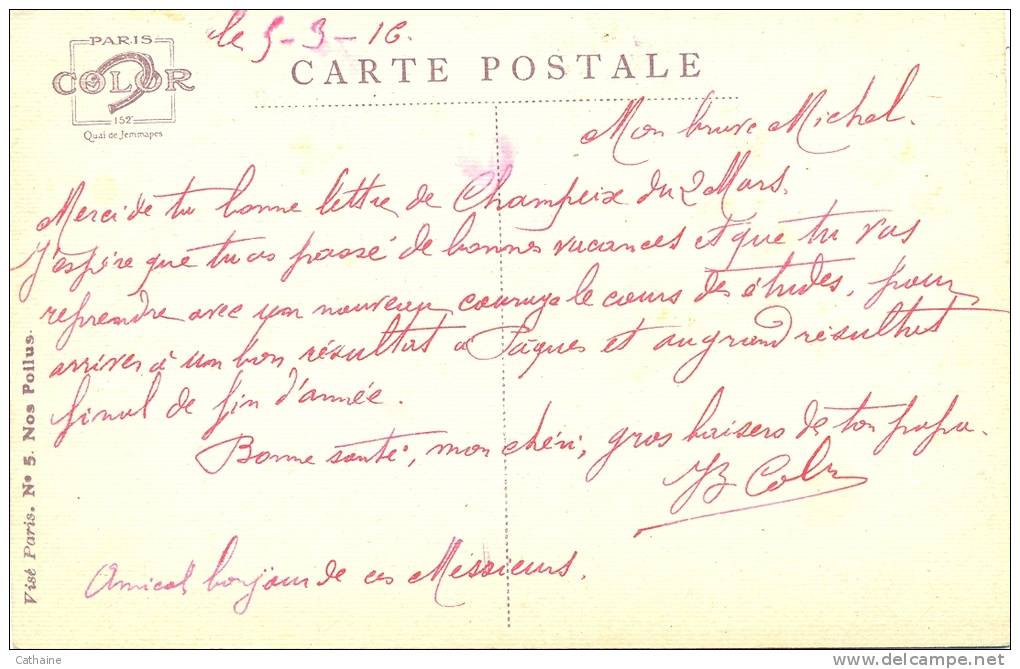 le 5-3-16.
PARIS
COLOR
152
Quai de Jemmapes
CARTE POSTALE
Mon brave Michel.
Merci de ta bonne lettre de Champeix du 2 Mars.
J'espère que tu as passé de bonnes vacances et que tu vas
reprendre avec un nouveau courage le cours des études, pour
arriver à un bon résultat à Pâques et au grand résultat
final de fin d'année.
Bonne santé, mon chéri, gros baisers de ton papa.
JB
Amical bonjour de ces Messieurs.
Visé Paris. No 5. Nos Poilus.
Cathaine
delcampe.net